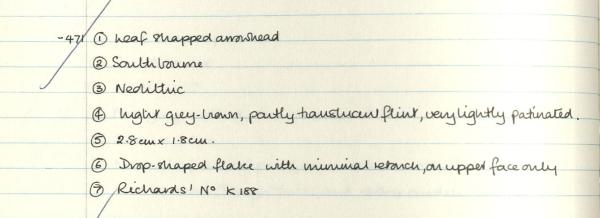 -471 ① Leaf shapped arrowhead
② Southbourne
③ Neolithic
④ light grey-brown, partly translucent flint, very lightly patinated.
⑤ 2.8cm x 1.8cm.
⑥ Drop-shaped flake with minimal retouch, on upper face only
⑦ Richards' No K188